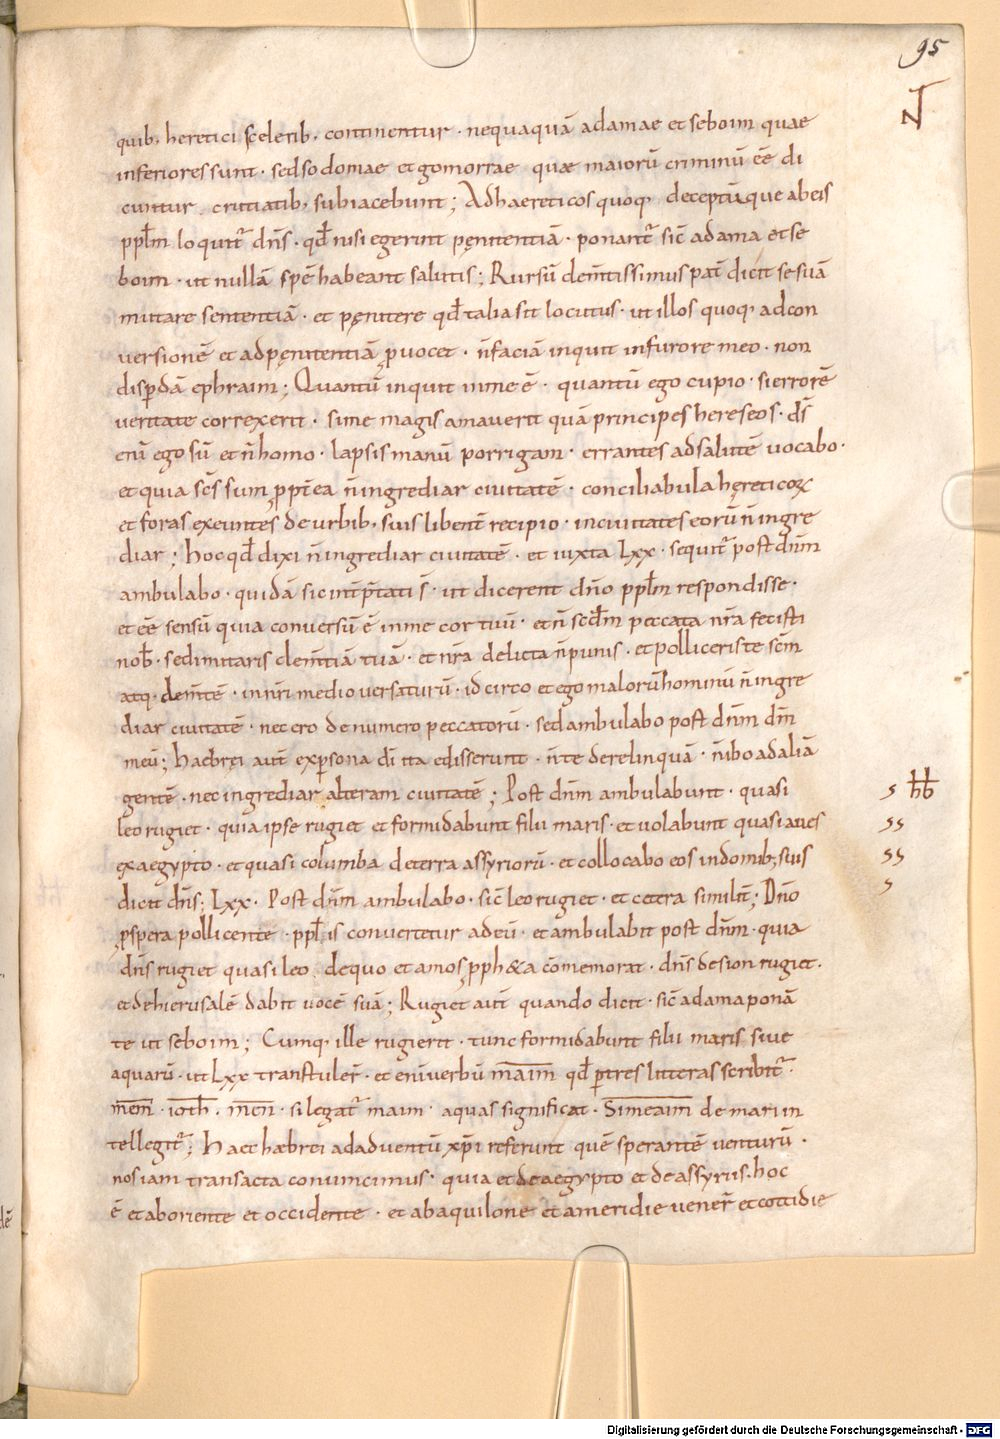 95
N
quib, heretici sceletib, continentur · nequaquā adamae et seboim quae
inferiores sunt · sed sodomae et gomorrae quae maiorū criminū eē di
cuntur ciuitatib, subiacebunt; Ad haereticos quoq, deceptūque ab eis
pplm̄ loquit̄ dn̄s · qd̄ nisi egerint pęnitentiā · ponant̄ sic̄ adama et se
boim · ut nullā spē habeant salutis; Rursū clem̄tissimus pat̄ dicit se suā
mittare sententiā · et pęnitere qd̄ talia sit locutus · ut illos quoq, ad con
versionē et ad pęnitentiā ꝓuocet · n̄ faciā inquit in furore meo · non
disꝑdā ephraim; Quantū inquit in me ē · quantū ego cupio · si errorē
veritate correxerit · si me magis amaverit quā principes hereseos · ds̄
enī ego sū et n̄ homo · lapsis manū porrigam · errantes ad salutē uocabo ·
et quia sc̄s sum ꝓpt̄ea n̄ ingrediar ciuitatē · conciliabula hęreticoꝝ
et foras exeuntes de urbib, suis libent̄ recipio · in ciuitates eorū n̄ ingre
diar; hoc qd̄ dixi n̄ ingrediar ciuitatē · et iuxta Lxx · sequit̄ post dn̄m
ambulabo · quidā sic int̄p̄tati s̄ · ut dicerent dn̄o pplm̄ respondisse ·
et eē sensū quia conversū ē in me cor tuū · et n̄ scd̄m peccata nr̄a fecisti
nob̄ · sed imitaris clem̄tiā tuā · et nr̄a delicta n̄ punis · et polliceris te sc̄m
atq, clem̄tē · in nr̄i medio versaturū · idcirco et ego malorū hominū n̄ ingre
diar ciuitatē · nec ero de numero peccatorū · sed ambulabo post dn̄m dm̄
meū; haebręi aut̄ ex ꝑsona dī ita edisserunt · n̄ te derelinquā · n̄ ibo ad aliā
gentē · nec ingrediar alteram ciuitatē; Post dn̄m ambulabunt · quasi
s hb
leo rugiet · quia ipse rugiet et formidabunt filii maris · et uolabunt quasi aues
ss
ex aegypto · et quasi columba de terra assyriorū · et collocabo eos in domib; suis
ss
dicit dn̄s; Lxx · Post dn̄m ambulabo · sic̄ leo rugiet · et cetera similit̄; Dn̄o
s
ꝓspera pollicente · ppl̄ is convertetur ad eū · et ambulabit post dn̄m · quia
dn̄s rugiet quasi leo de quo et amos ꝓph&a cōmemorat · dn̄s de sion rugiet ·
et de hierusalē dabit uocē suā; Rugiet aut̄ quando dicit · sic̄ adama ponā
te ut seboim; Cumq, ille rugierit · tunc formidabunt filii maris siue
aquarū · ut Lxx transtuler̄ · et enī verbū maim qd̄ ꝑ tres litteras scribit̄ ·
mem · ioth · mem · si legat̄ maim · aquas significat · Si meaim de mari in
tellegit̄; Haec haebrei ad adventū xp̄i referunt quē sperantē venturū ·
nos iam transacta convincimus · quia et de aegypto et de assyriis · hoc
ē et ab oriente et occidente · et ab aquilone et a meridie vener̄ et cottidie
Digitalisierung gefördert durch die Deutsche Forschungsgemeinschaft - DFG